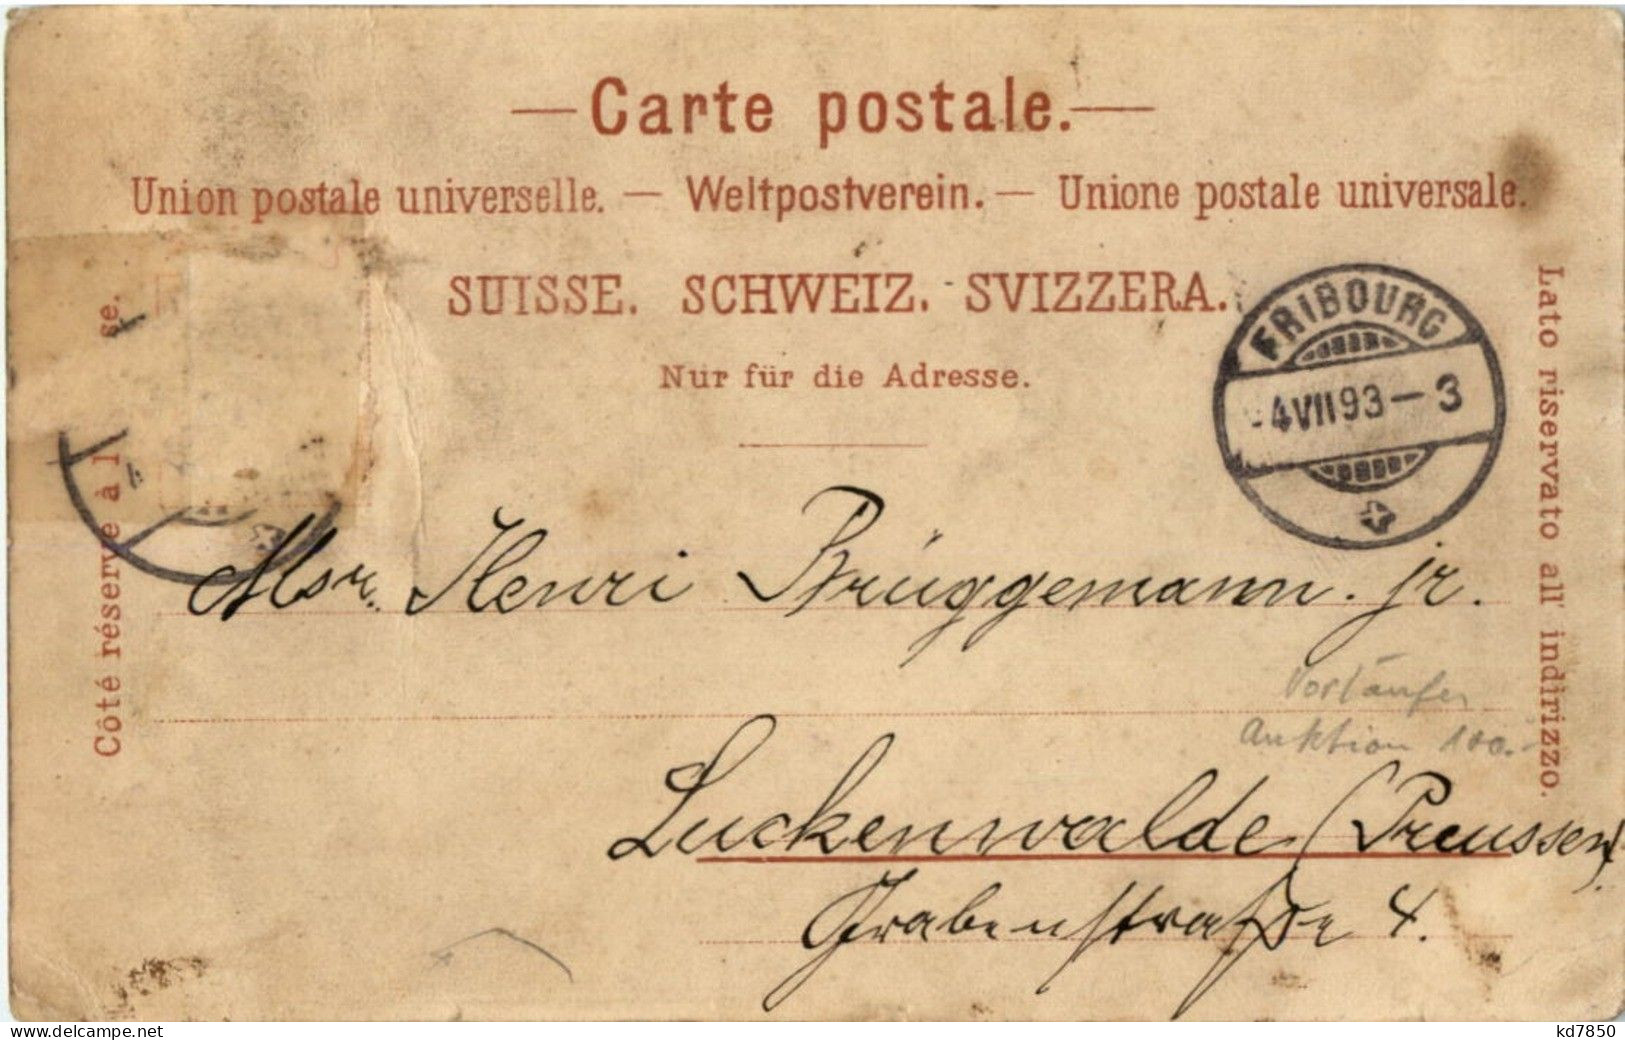 Carte postale.
Union postale universelle. — Weltpostverein. — Unione postale universale.
SUISSE. SCHWEIZ. SVIZZERA.
Nur für die Adresse.
FRIBOURG
-4 VII 93 — 3
Côté réservé à l se.
Lato riservato all' indirizzo.
Msr. Henri Brüggemann. jr.
Vorläufer
Auktion 100.-
Luckenwalde (Preussen).
Grabenstraße 4.
www.delcampe.net
kd7850